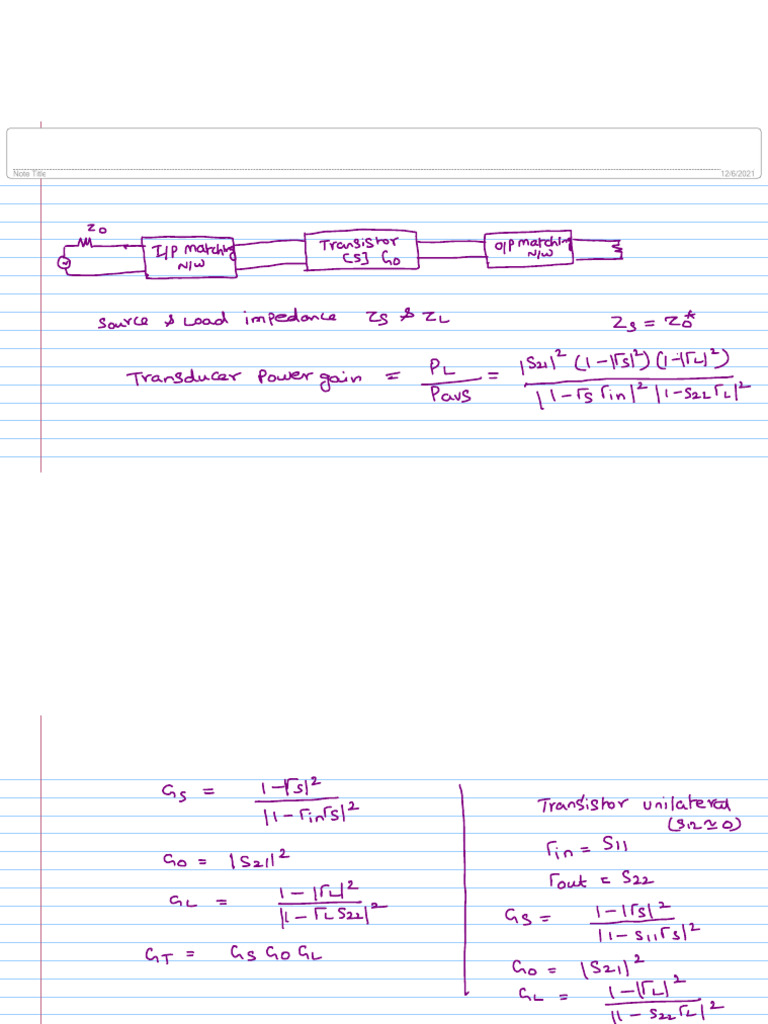 Note Title
12/6/2021
Z0
I/P Matching N/W
Transistor [S] G0
O/P matching N/W
Source & Load impedance Zs & ZL
Zs = Z0*
Transducer Power gain = PL / Pavs = |S21|² (1-|Γs|²) (1-|ΓL|²) / |1-Γs Γin|² |1-S22 ΓL|²
Gs = 1-|Γs|² / |1-Γin Γs|²
G0 = |S21|²
GL = 1-|ΓL|² / |1-ΓL S22|²
GT = Gs G0 GL
Transistor unilateral
(S12 ≃ 0)
Γin = S11
Γout = S22
Gs = 1-|Γs|² / |1-S11 Γs|²
G0 = |S21|²
GL = 1-|ΓL|² / |1-S22 ΓL|²